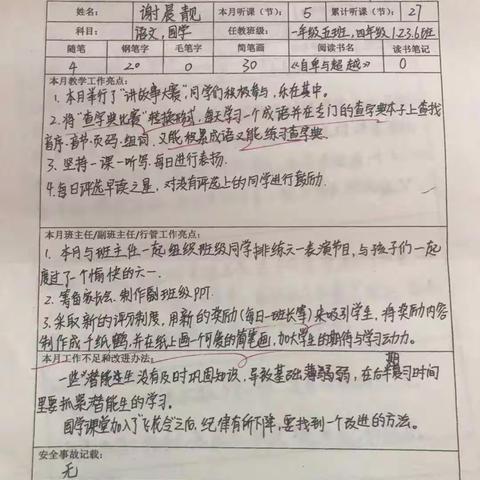 姓名： 谢晨靓 本月听课（节）： 5 累计听课（节）： 27
科目： 语文，国学 任教班级： 一年级五班，四年级1.2.3.6班
随笔 钢笔字 毛笔字 简笔画 阅读书名 读书笔记
4 20 0 30 《自卑与超越》 0
本月教学工作亮点：
1. 本月举行了“讲故事大赛”，同学们积极参与，乐在其中。
2. 将“查字典比赛”转换形式，每天学习一个成语并在专门的查字典本子上查找
音序.音节.页码.组词，又能积累成语又能练习查字典.
3. 坚持一课一听写.每日进行表扬.
4.每日评选早读之星，对没有评选上的同学进行鼓励.
本月班主任/副班主任/行管工作亮点：
1. 本月与班主任一起组织班级同学排练六一表演节目，与孩子们一起
度过了一个愉快的六一.
2. 筹备家长会.制作副班级PPT.
3. 采取新的评分制度，用新的奖励（每日一班长等）来吸引学生，将奖励内容
制作成千纸鹤，并在纸上画一个可爱的简笔画，加大学生的期待与学习动力。
本月工作不足和改进办法：
一些“潜能生”没有及时巩固知识，导致基础薄弱，在后期复习时间
里要抓紧潜能生的学习。
国学课堂加入了“飞花令”之后，纪律有所下降，要找到一个改进的方法。
安全事故记载：
无